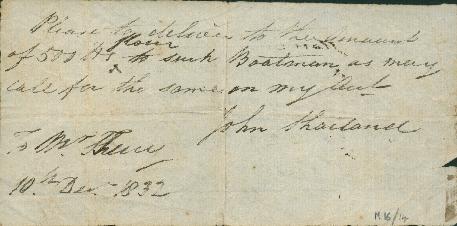 Please to deliver to the amount
of 500 lbs flour to such Boatman, as may
call for the same on my Acct
John Thailand
To Mr
10th Decr 1832
M.16/14